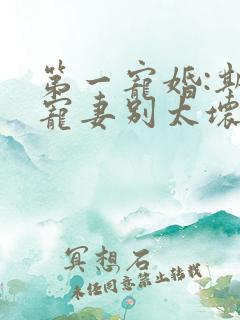 第一寵婚:
寵妻别太壞
冥想石
未经同意禁止转载